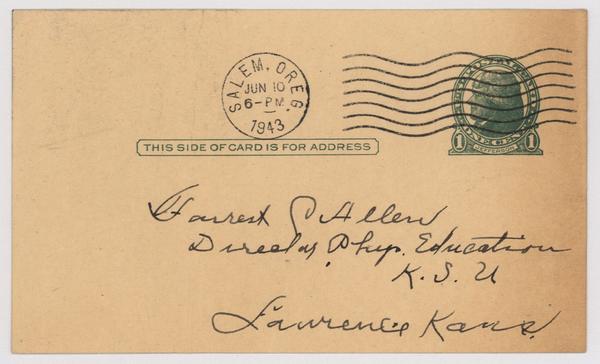 SALEM, OREG.
JUN 10
6-PM
1943
THIS SIDE OF CARD IS FOR ADDRESS
1 JEFFERSON 1
Forrest C Allen
Director Phys. Education
K. S. U
Lawrence Kans.